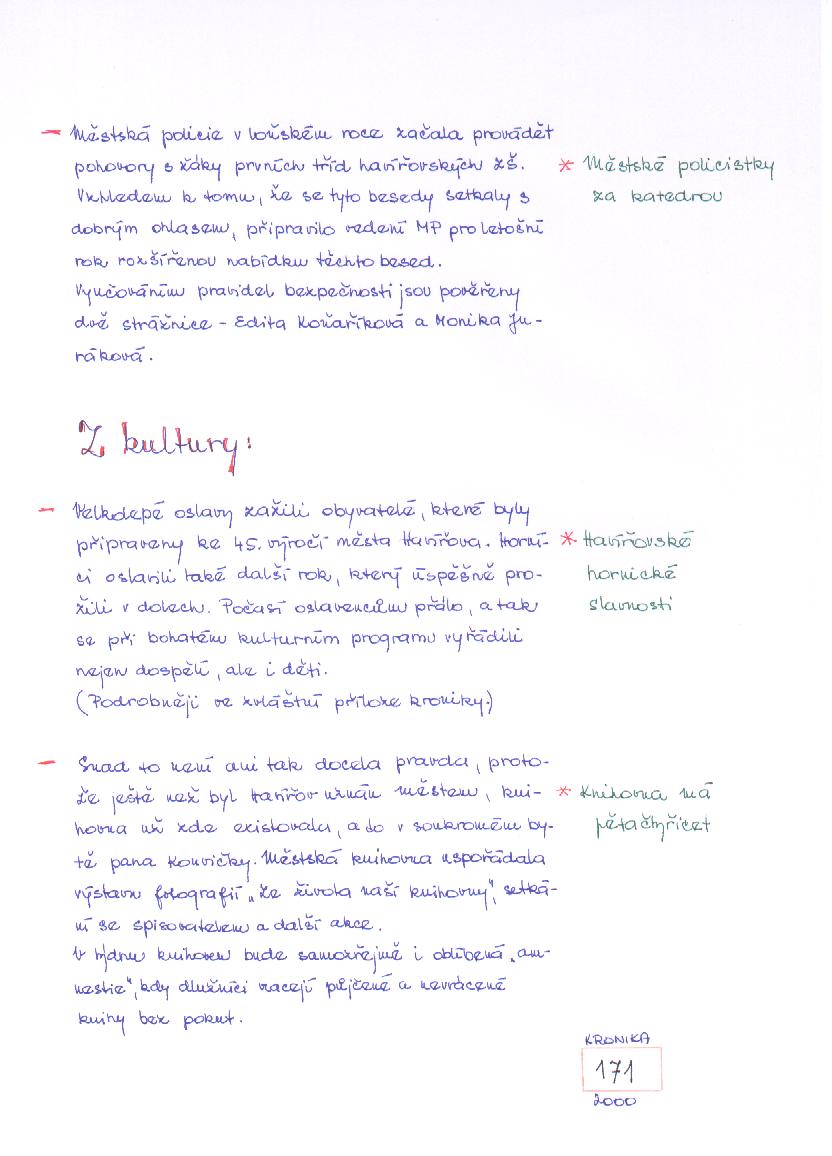 – Městská policie v loňském roce začala provádět
pohovory s žáky prvních tříd havířovských ZŠ.
* Městské policistky
za katedrou
Vzhledem k tomu, že se tyto besedy setkaly s
dobrým ohlasem, připravilo vedení MP pro letošní
rok rozšířenou nabídku těchto besed.
Vyučováním pravidel bezpečnosti jsou pověřeny
dvě strážnice – Edita Koňaříková a Monika Ju-
ráková.
Z kultury:
– Velkolepé oslavy zažili obyvatelé, které byly
připraveny ke 45. výročí města Havířova. Horní-
* Havířovské
hornické
slavnosti
ci oslavili také další rok, který úspěšně pro-
žili v dolech. Počasí oslavencům přálo, a tak
se při bohatém kulturním programu vyřádili
nejen dospělí, ale i děti.
(Podrobněji ve zvláštní příloze kroniky.)
– Snad to není ani tak docela pravda, proto-
že ještě než byl Havířov uznán městem, kni-
* Knihovna má
pětačtyřicet
hovna už zde existovala, a to v soukromém by-
tě pana Konvičky. Městská knihovna uspořádala
výstavu fotografií „Ze života naší knihovny", setká-
ní se spisovatelem a další akce.
V týdnu knihoven bude samozřejmě i oblíbená „am-
nestie", kdy dlužníci vracejí půjčené a nevrácené
knihy bez pokut.
KRONIKA
171
2000